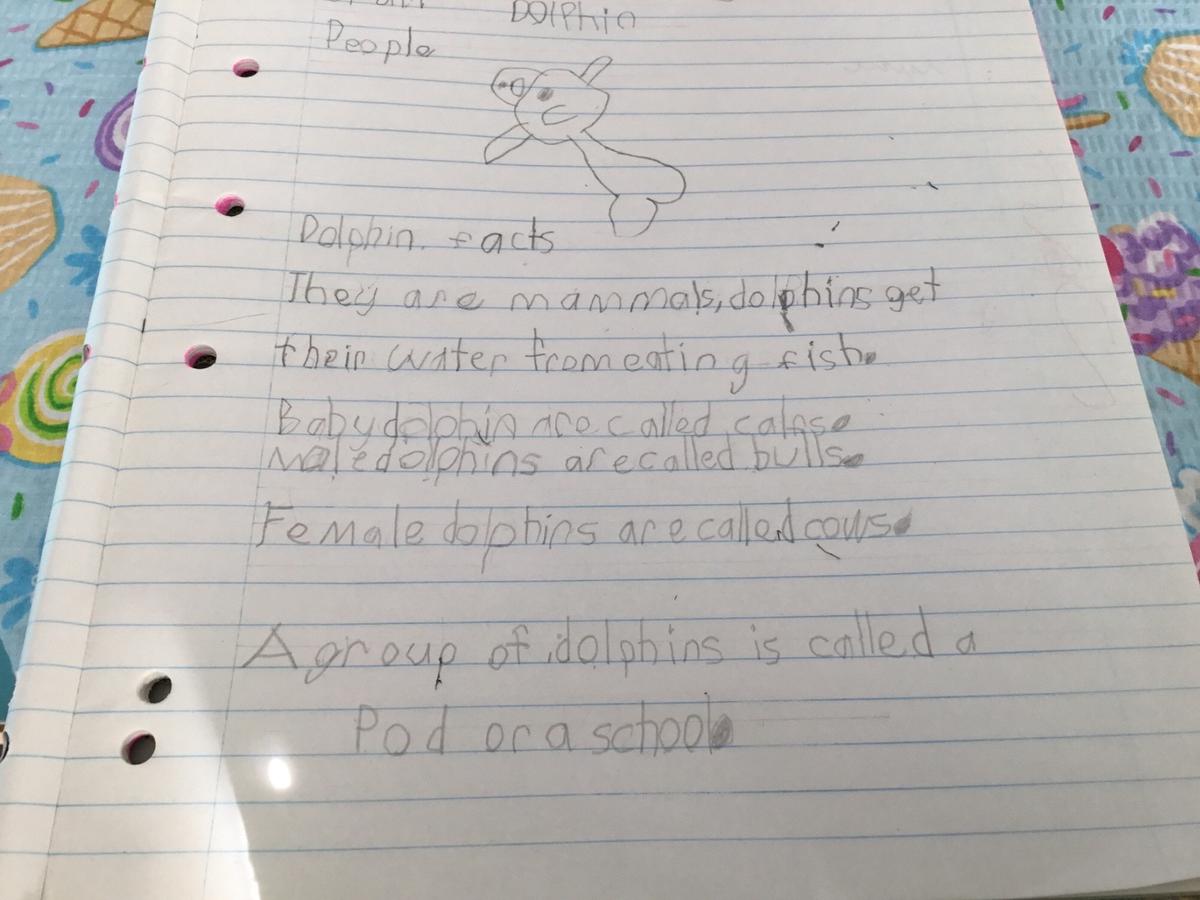 DOlPhin
People
Dolphin. facts
They are mammals, dolphins get
their water from eating fish.
Baby dolphin are called calfs.
Male dolphins are called bulls.
Female dolphins are called cows.
A group of dolphins is called a
Pod or a school.